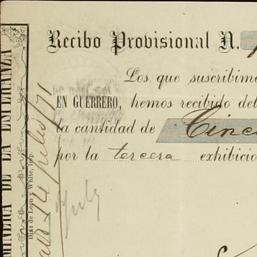 Recibo Provisional N.
Los que suscribimo
EN GUERRERO, hemos recibido del
la cantidad de Cinc
por la tercera exhibicio
MINERA DE LA ESPERANZA
Díaz de León y White, imp.
July